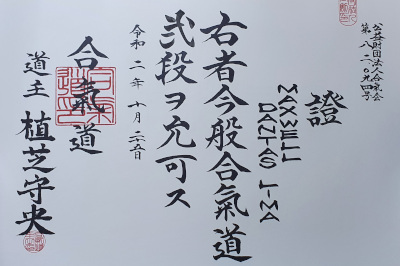 公益財団法人合気会
第八二〇九四号
證
MAXWELL
DANTAS LIMA
右者今般合氣道
弐段ヲ允可ス
令和二年十月二五日
合氣道
道主 植芝守央